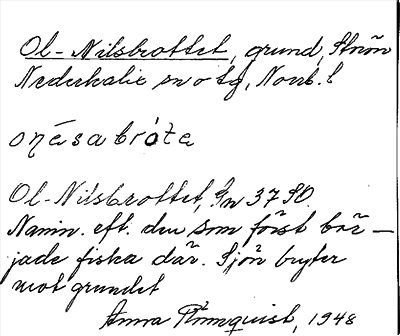 Ol-Nilsbrottet, grund, Storön
Nederkalix sn o tg, Norrb. l
onésabróta
Ol-Nilsbrottet, Gn 37 SO.
Namn. eft. den som först bör—
jade fiska där. Sjön bryter
mot grundet
Anna 1948